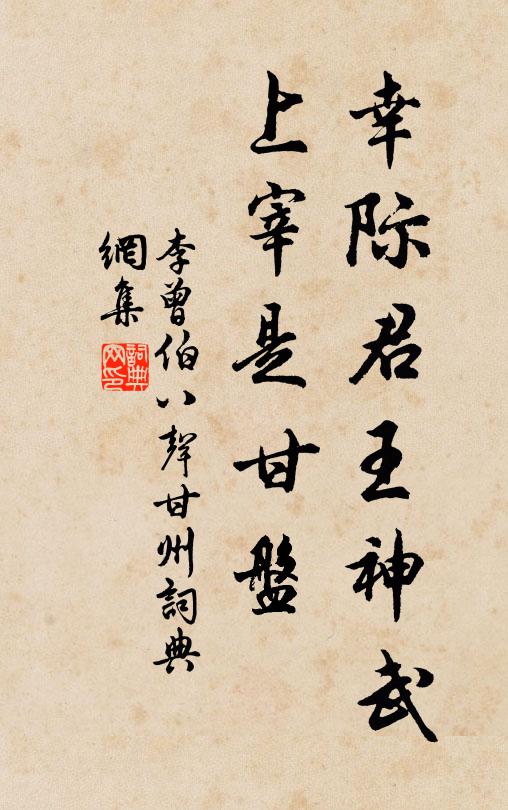 幸际君王神武
上宰是甘盤
李曾伯八聲甘州詞典
網集
詞典
网印